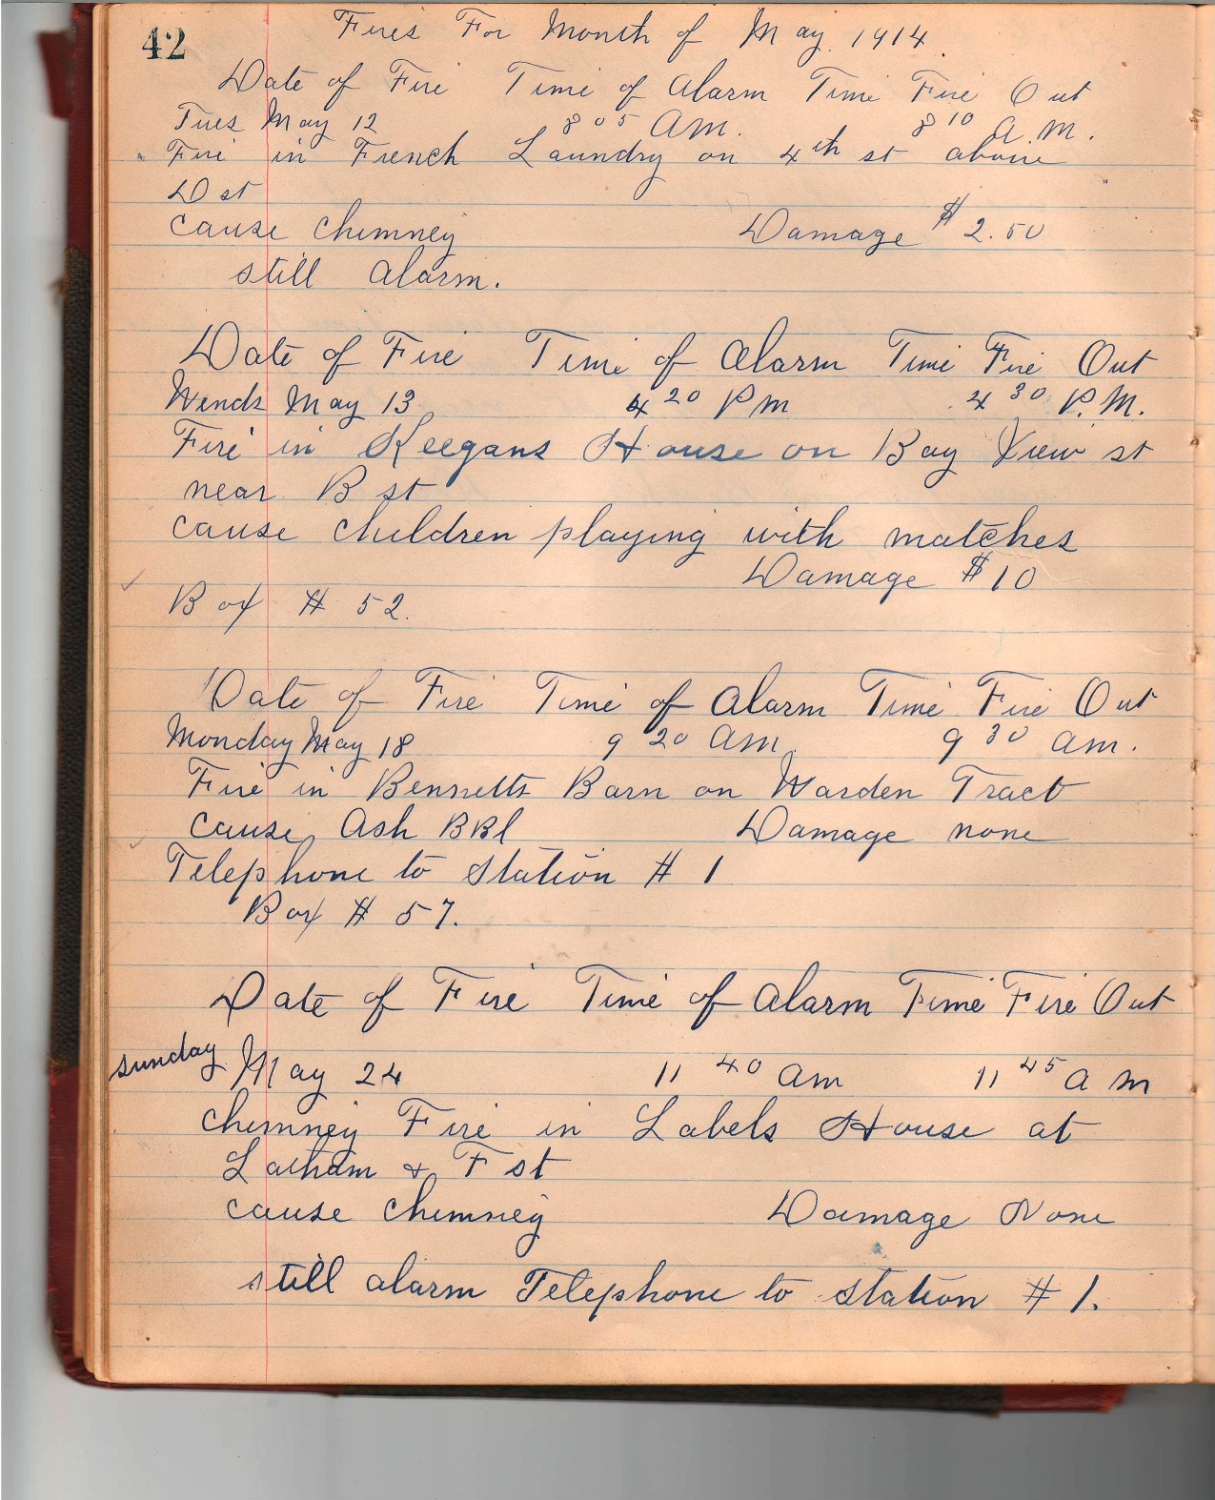 42
Fires For Month of May 1914
Date of Fire Time of Alarm Time Fire Out
Tues May 12 8 05 AM. 8 10 A.M.
Fire in French Laundry on 4th st above
D st
cause chimney Damage $ 2.50
still Alarm.
Date of Fire Time of Alarm Time Fire Out
Wends May 13 4 20 PM 4 30 P.M.
Fire in Keegans House on Bay View st
near B st
cause children playing with matches
Damage $10
Box # 52.
Date of Fire Time of Alarm Time Fire Out
Monday May 18 9 20 AM. 9 30 am.
Fire in Bennetts Barn on Warden Tract
cause Ash BBl Damage none
Telephone to Station # 1
Box # 57.
Date of Fire Time of Alarm Time Fire Out
sunday May 24 11 40 am 11 45 a m
chimney Fire in Labels House at
Latham & F st
cause chimney Damage None
still alarm Telephone to station # 1.